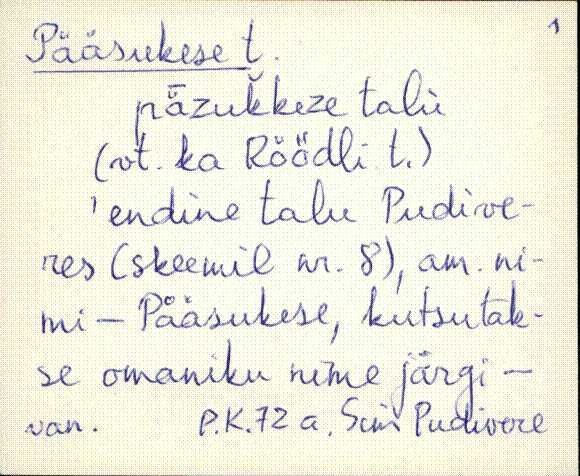 1
Pääsukese t.
pǟzukkeze talu
(vt. ka Röödli t.)
'endine talu Pudive-
res (skeemil nr. 8), am. ni-
mi — Pääsukese, kutsutak-
se omaniku nime järgi —
van. P.K. 72 a. Sim Pudivere